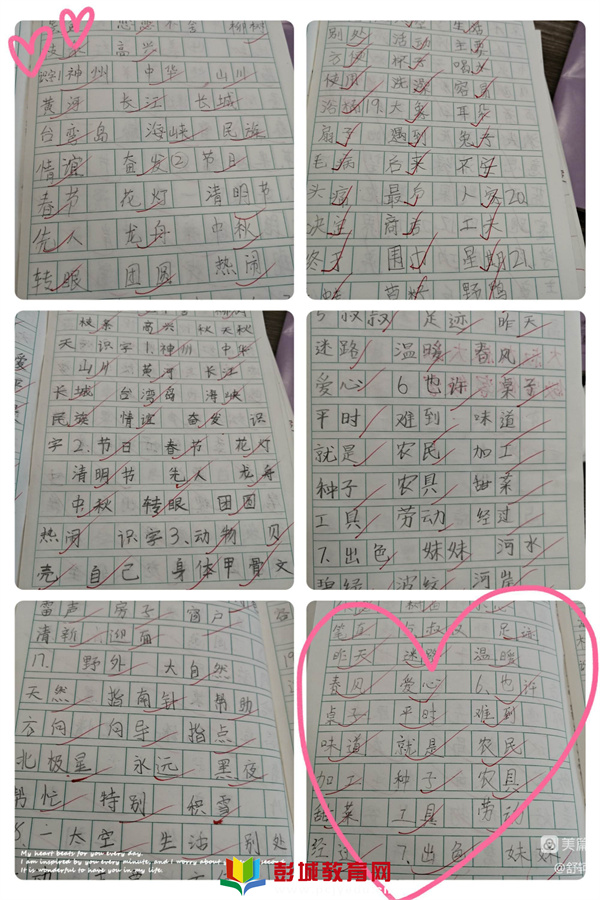 高兴
神州 中华 山川
黄河 长江 长城
台湾岛 海峡 民族
情谊 奋发 ② 节日
春节 花灯 清明节
先人 龙舟 中秋
转眼 团圆 热闹
别处 生活
活动
使用 洗澡 容易
浴桶 19. 大象 耳朵
扇子 遇到 兔子
毛病 后来 不安
头痛 最后 人家 20.
决定 商店 工夫
终于 围巾 星期 21.
野鸭
高兴 秋天
天 识字 1. 神州 中华
山川 黄河 长江
长城 台湾岛 海峡
民族 情谊 奋发 识
字 2. 节日 春节 花灯
清明节 先人 龙舟
中秋 转眼 团圆
热闹 识字 3. 动物 贝
壳 自己 身体 甲骨文
5 叔叔 足迹 昨天
迷路 温暖 春风
爱心 6 也许 桌子
平时 难到 味道
就是 农民 加工
种子 农具 甜菜
工具 劳动 经过
7. 出色 妹妹 河水
碧绿 波纹 河岸
雷声 房子 窗户
清新 湖面
17. 野外 大自然
天然 指南针 帮助
方向 向导 指点
北极星 永远 黑夜
帮忙 特别 积雪
太空 生活 别处
足迹
昨天 迷路 温暖
春风 爱心 6. 也许
桌子 平时 难到
味道 就是 农民
加工 种子 农具
甜菜 工具 劳动
经过 7. 出色 妹妹
My heart beats for you every day,
I am inspired by you every minute, and I worry about
It is wonderful to have you in my life.
彭城教育网